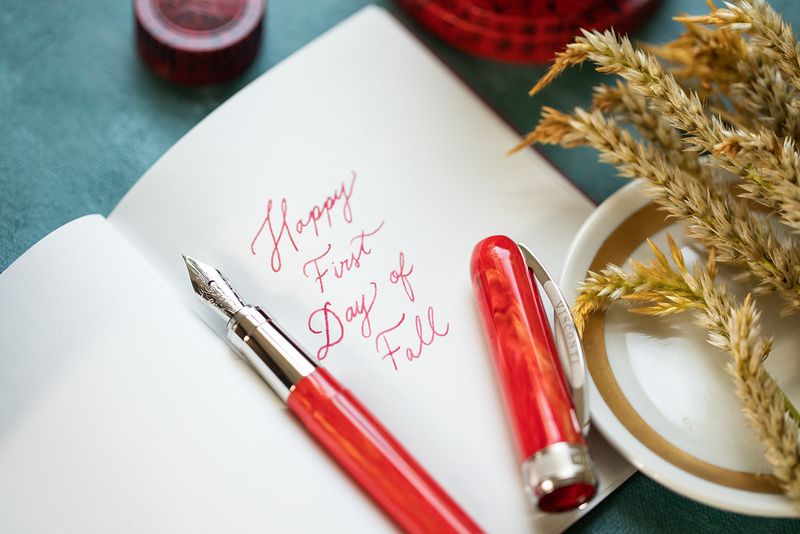 Happy
First
Day of
Fall
VISCONTI